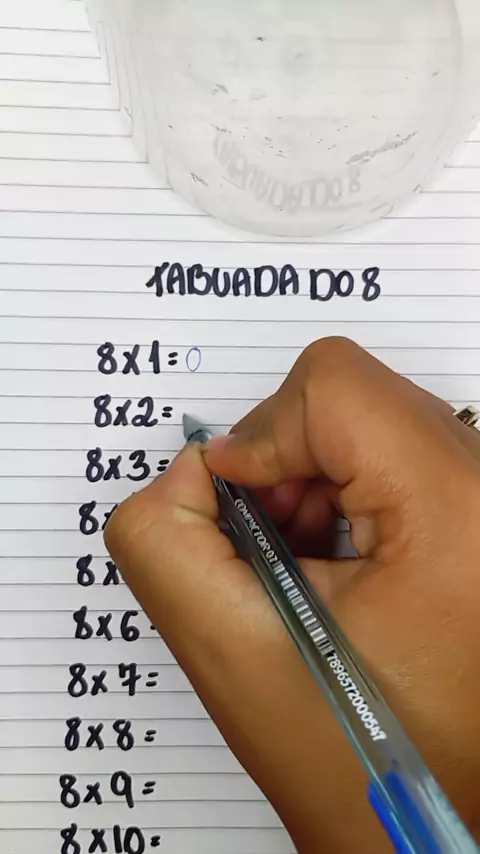 TABUADA DO 8
8x1= 0
8x2=
8x3=
8x
8x
8x6
8x7=
8x8=
8x9=
8x10=
COMPACTOR 07 7896572000547